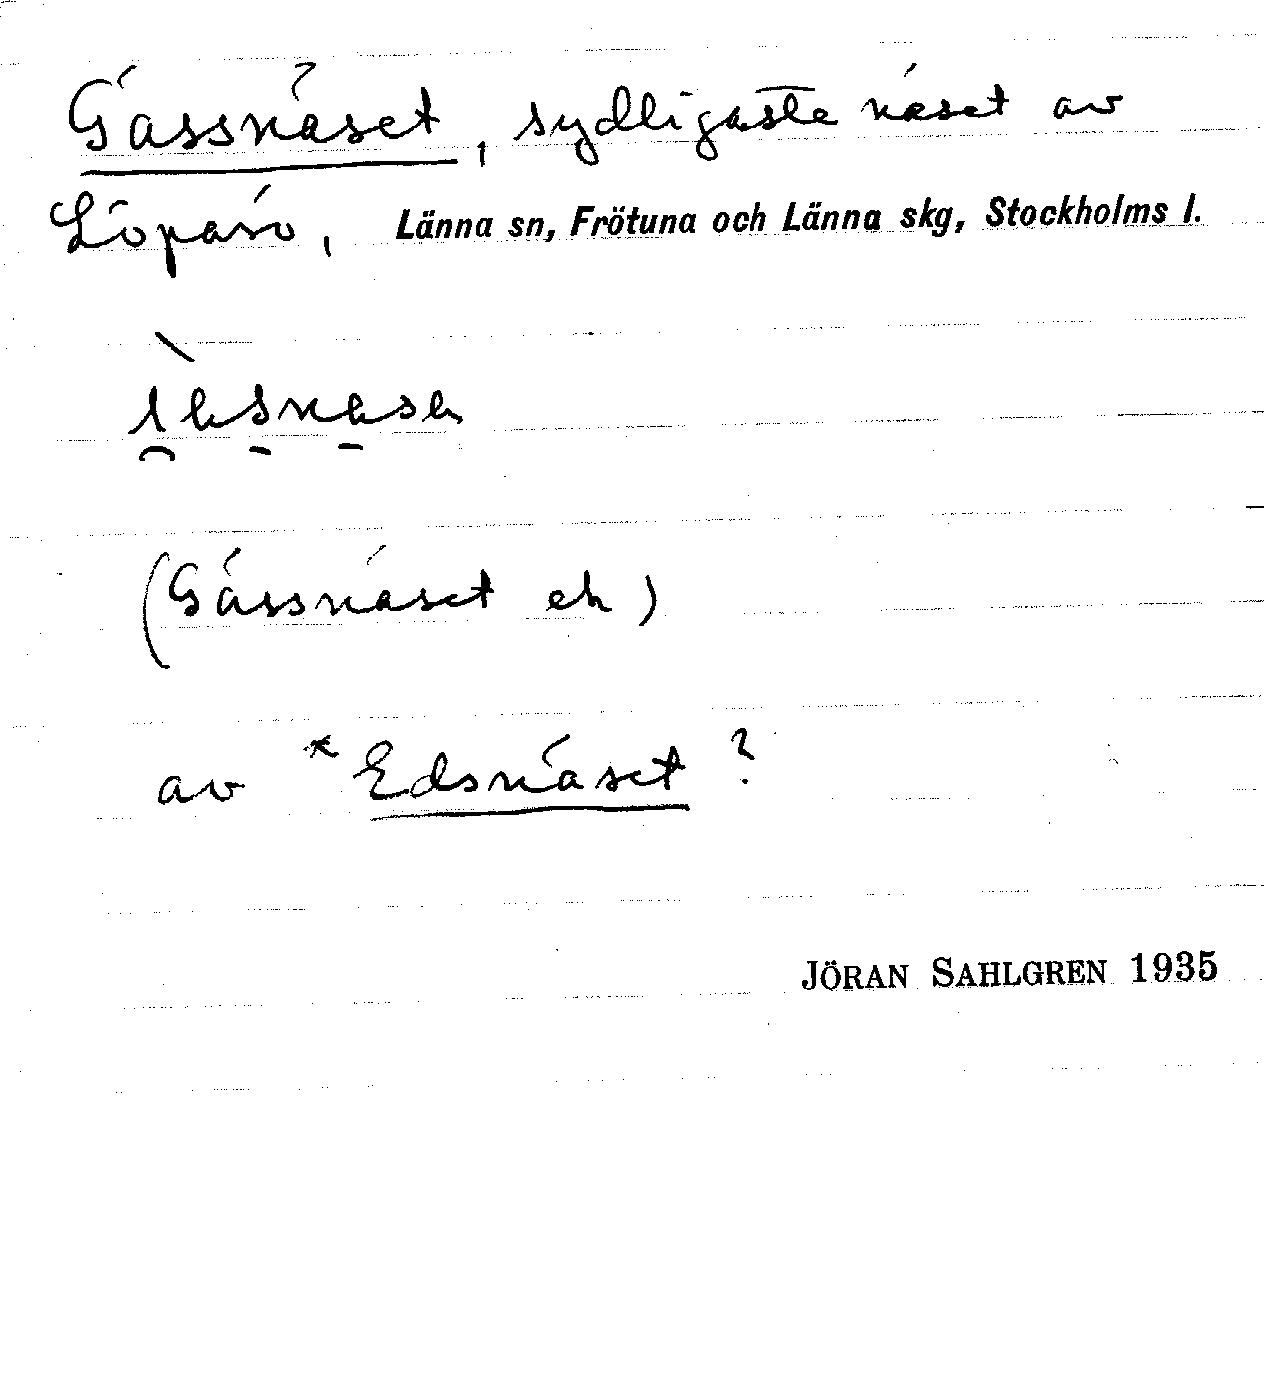 Gässnäset, sydligaste näset av
Löparö, Länna sn, Frötuna och Länna skg, Stockholms l.
(Gässnäset ek)
av *Edsnäset?
JÖRAN SAHLGREN 1935